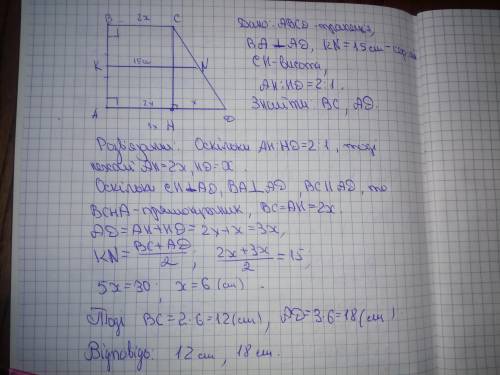 B 2x C
Дано: ABCD - трапеція,
BA⊥AD, KN=15см -
K 15см N
CH-висота,
AH:HD=2:1.
A 2x x D
Знайти: BC, AD.
3x H
Розв'язання. Оскільки AH:HD=2:1, тоді
нехай AH=2x, HD=x.
Оскільки CH⊥AD, BA⊥AD, BC∥AD, то
BCHA-прямокутник, BC=AH=2x.
AD=AH+HD=2x+x=3x,
KN=(BC+AD)/2; (2x+3x)/2=15,
5x=30; x=6(см).
Тоді BC=2·6=12(см), AD=3·6=18(см)
Відповідь: 12см, 18см.